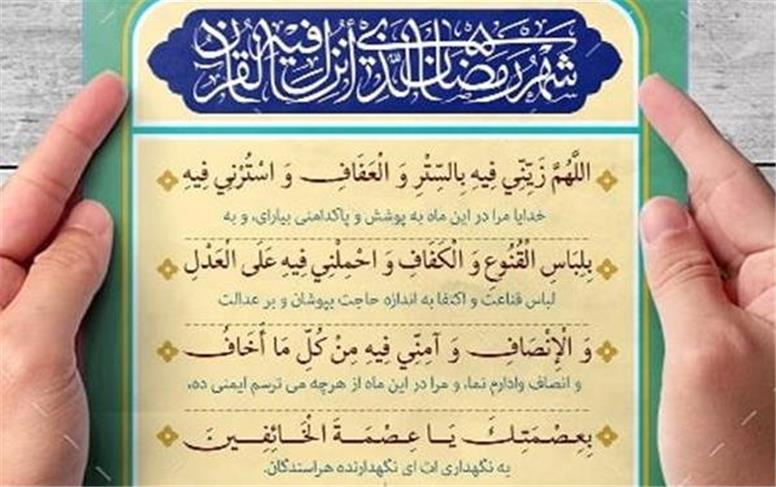 شهر رمضان الذی أنزل فیه القرآن
اللَّهُمَّ زَيِّنِّي فِيهِ بِالسِّتْرِ وَ الْعَفَافِ وَ اسْتُرْنِي فِيهِ
خدایا مرا در این ماه به پوشش و پاکدامنی بیارای، و به
بِلِبَاسِ الْقُنُوعِ وَ الْكَفَافِ وَ احْمِلْنِي فِيهِ عَلَى الْعَدْلِ
لباس قناعت و اکتفا به اندازه حاجت بپوشان و بر عدالت
وَ الْإِنْصَافِ وَ آمِنِّي فِيهِ مِنْ كُلِّ مَا أَخَافُ
و انصاف وادارم نما، و مرا در این ماه از هرچه می ترسم ایمنی ده،
بِعِصْمَتِكَ يَا عِصْمَةَ الْخَائِفِينَ
به نگهداری ات ای نگهدارنده هراسندگان.